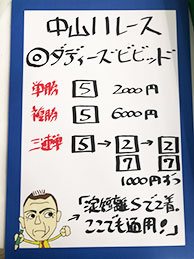 中山11レース
◎ダディーズビビッド
単勝 5 2000円
複勝 5 6000円
三連単 5 → 2 → 2
7 7
1000円ずつ
「淀短距離Sで2着、
ここでも通用!」